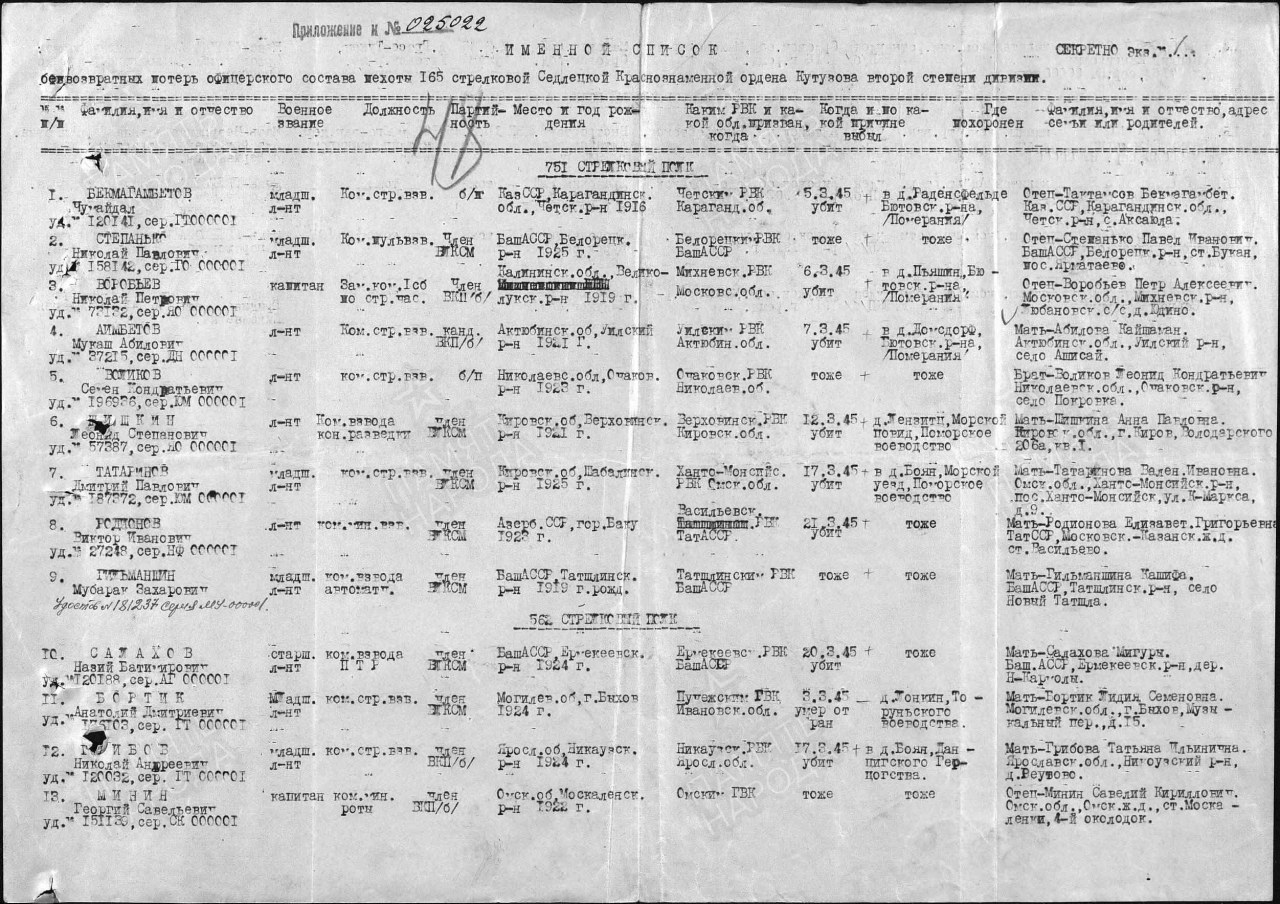 Приложение к № 025022
ИМЕННОЙ СПИСОК
СЕКРЕТНО Экз.№ 1
безвозвратных потерь офицерского состава пехоты 165 стрелковой Седлецкой Краснознаменной ордена Кутузова второй степени дивизии.
№ № Фамилия,имя и отчество Военное Должность Партий- Место и год рож- Каким РВК и ка- Когда и по ка- Где Фамилия,имя и отчество,адрес
п/п звание ность дения кой обл.призван, кой причине похоронен семьи или родителей.
когда выбыл
751 СТРЕЛКОВЫЙ ПОЛК
1. БЕКМАГАМБЕТОВ младш. Ком.стр.взв. б/п КазССР,Карагандинск. Четским РВК 5.3.45 + в д.Раденсфельде Отец-Тактамсов Бекмагамбет.
Чумайдал л-нт обл.,Четск.р-н 1916 Караганд.об. убит Бютовск.р-на, Каз.ССР,Карагандинск.обл.,
уд.№ 120141,сер.ГТ000001 /Померания/ Четск.р-н,с.Аксаюла.
2. СТЕПАНЬКО младш. Ком.пульвзв. Член БашАССР,Белорецк. Белорецким РВК тоже + тоже Отец-Степанько Павел Иванович.
Николай Павлович л-нт ВЛКСМ р-н 1925 г. БашАССР БашАССР,Белорецк.р-н,ст.Букан,
уд.№ 158142,сер.ГО 000001 пос.Ярматаево.
Калининск.обл.,Велико- Михневск.РВК 6.3.45 + в д.Пьяшин,Бю- Отец-Воробьев Петр Алексеевич.
3. ВОРОБЬЕВ капитан Зам.ком.1сб Член лукск.р-н 1919 г. Московс.обл. убит товск.р-на, Московск.обл.,Михневск.р-н,
Николай Петрович по стр.час. ВКП/б/ /Померания/ Любановск.с/с,д.Юдино.
уд.№ 73132,сер.ЯО 000001
4. АИМБЕТОВ л-нт Ком.стр.взв. канд. Актюбинск.об,Уилский Уилским РВК 7.3.45 + в д.Домсдорф, Мать-Абилова Кайшаман.
Мукаш Абилович ВКП/б/ р-н 1921 г. Актюбин.обл. убит Бютовск.р-на, Актюбинск.обл.,Уилский р-н,
уд.№ 37215,сер.ДН 000001 /Померания/ село Ашисай.
5. ВОЛИКОВ л-нт ком.стр.взв. б/п Николаевс.обл,Очаков. Очаковск.РВК тоже + тоже Брат-Воликов Леонид Кондратьевич
Семен Кондратьевич р-н 1923 г. Николаев.об. Николаевск.обл.,Очаковск.р-н,
уд.№ 196936,сер.ЮМ 000001 село Покровка.
6. ШИШКИН л-нт Ком.взвода член Кировск.об,Верховинск. Верховинск.РВК 12.3.45 + д.Лензитц,Морской Мать-Шишкина Анна Павловна.
Леонид Степанович кон.разведки ВЛКСМ р-н 1921 г. Кировск.обл. убит повид,Поморское Кировск.обл.,г.Киров,Володарского
уд.№ 57387,сер.ЯО 000001 воеводство 206а,кв.1.
7. ТАТАРИНОВ младш. ком.стр.взв. член Кировск.об,Шабалинск. Ханто-Монсийс. 17.3.45 + в д.Боян,Морской Мать-Татаринова Вален.Ивановна.
Дмитрий Павлович л-нт ВЛКСМ р-н 1925 г. РВК Омск.обл. убит уезд,Поморское Омск.обл.,Ханто-Монсийск.р-н,
уд.№ 187372,сер.ЮМ 000001 воеводство пос.Ханто-Монсийск,ул.К-Маркса,
д.9.
Васильевск.
8. РОДИОНОВ л-нт ком.мин.взв. член Азерб.ССР,гор.Баку РВК 21.3.45 + тоже Мать-Родионова Елизавет.Григорьевна
Виктор Иванович ВЛКСМ 1923 г. ТатАССР. убит ТатССР,Московск.-Казанск.ж.д.
уд.№ 27248,сер.НФ 000001 ст.Васильево.
9. ГИЛЬМАНШИН младш. ком.взвода член БашАССР,Татшлинск. Татшлинским РВК тоже + тоже Мать-Гильманшина Кашифа.
Мубарак Захарович л-нт автомат. ВЛКСМ р-н 1919 г.рожд. БашАССР БашАССР,Татшлинск.р-н, село
Удоств №181237 серия МУ-000001. Новый Татшла.
562 СТРЕЛКОВЫЙ ПОЛК
10. САЛАХОВ старш. ком.взвода член БашАССР,Ермекеевск. Ермекеевск.РВК 20.3.45 + тоже Мать-Салахова Мигуры.
Назий Батимирович л-нт ПТР ВЛКСМ р-н 1924 г. БашАССР убит Баш.АССР,Ермекеевск.р-н,дер.
уд.№120188,сер.АГ 000001 Н-Кармолы.
11. БОРТИК Младш. ком.стр.взв. член Могилев.об,г.Быхов Пучежским РВК 3.3.45 — д.Лонкин,То - Мать-Бортик Лидия Семеновна.
Анатолий Дмитриевич л-нт ВЛКСМ 1924 г. Ивановск.обл. умер от руньского Могилевск.обл.,г.Быхов,Музы-
уд.№ сер. ГТ 000001 ран воеводства. кальный пер.,д.15.
12. ГРИБОВ младш. ком.стр.взв. член Яросл.об,Никаузск. Никаузск.РВК 17.3.45 + в д.Боян,Дан - Мать-Грибова Татьяна Ильинична.
Николай Андреевич л-нт ВКП/б/ р-н 1924 г. Яросл.обл. убит цигского Гер- Ярославск.обл.,Никоузский р-н,
уд.№ 120032,сер. ГТ 000001 цогства. д.Реутово.
13. МИНИН капитан ком.мин. член Омск.об,Москаленск. Омским ГВК тоже тоже Отец-Минин Савелий Кириллович.
Георгий Савельевич роты ВКП/б/ р-н 1922 г. Омск.обл.,Омск.ж.д.,ст.Моска -
уд.№ 151139,сер.СК 000001 ленки,4-й околодок.